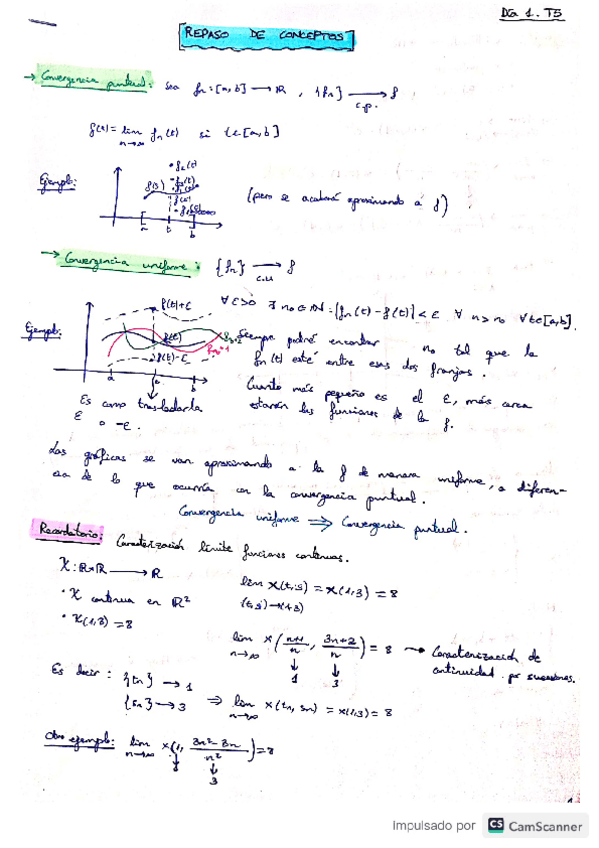 Día 1. T5
REPASO DE CONCEPTOS
→ Convergencia puntual: sea fn: [a,b] → ℝ, {fn} → f
c.p.
f(t) = lim fn(t) si t∈[a,b]
n→∞
Ejemplo:
f(t)
(pero se acabará aproximando a f)
a t b
→ Convergencia uniforme: {fn} → f
c.u.
∀ε>0 ∃ n₀∈ℕ : |fn(t) - f(t)| < ε ∀ n>n₀ ∀t∈[a,b].
Ejemplo:
f(t)+ε
f(t)
f(t)-ε
a b
Siempre podré encontrar no tal que la
fn(t) esté entre esas dos franjas.
Cuanto más pequeño es el ε, más cerca
estarán las funciones de la f.
Es como trasladarla
ε o -ε.
Las gráficas se van aproximando a la f de manera uniforme, a diferen-
cia de lo que ocurría con la convergencia puntual.
Convergencia uniforme ⇒ Convergencia puntual.
Recordatorio: Caracterización límite funciones continuas.
X: ℝ×ℝ → ℝ
lim x(t,s) = x(1,3) = 8
(t,s)→(1,3)
• X continua en ℝ²
• X(1,3) = 8
lim x( n+1/n , 3n+2/n ) = 8 → Caracterización de
n→∞ ↓ ↓ continuidad por sucesiones.
1 3
Es decir: {tn} → 1
{sn} → 3 ⇒ lim x(tn, sn) = x(1,3) = 8
n→∞
Otro ejemplo: lim x(1, 3n²-3n/n²) = 8
n→∞ ↓ ↓
1 3
Impulsado por CS CamScanner